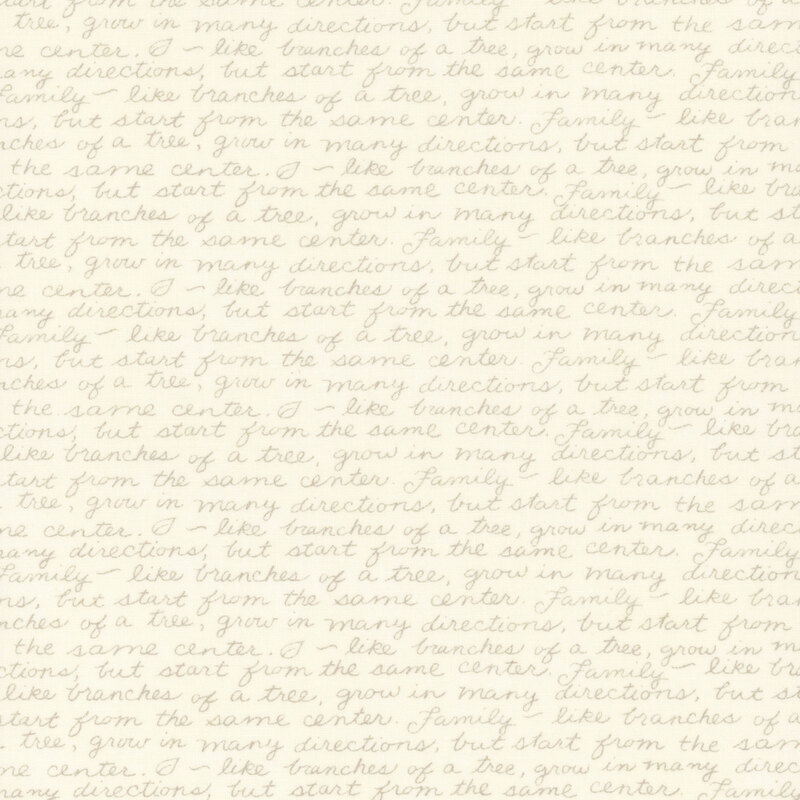 start from the same center. Family ~ like branches of a
tree, grow in many directions, but start from the sam
ne center. I ~ like branches of a tree, grow in many direct
any directions, but start from the same center. Family
Family ~ like branches of a tree, grow in many direction
ns, but start from the same center. Family ~ like bran
nches of a tree, grow in many directions, but start from
the same center. I ~ like branches of a tree, grow in m
ctions, but start from the same center. Family ~ like br
like branches of a tree, grow in many directions, but st
tart from the same center. Family ~ like branches of a
tree, grow in many directions, but start from the sam
ne center. I ~ like branches of a tree, grow in many direct
any directions, but start from the same center. Family
Family ~ like branches of a tree, grow in many direction
ns, but start from the same center. Family ~ like bran
nches of a tree, grow in many directions, but start from
the same center. I ~ like branches of a tree, grow in m
ctions, but start from the same center. Family ~ like br
like branches of a tree, grow in many directions, but st
tart from the same center. Family ~ like branches of a
tree, grow in many directions, but start from the sam
ne center. I ~ like branches of a tree, grow in many direc
any directions, but start from the same center. Family
Family ~ like branches of a tree, grow in many direction
ns, but start from the same center. Family ~ like bran
nches of a tree, grow in many directions, but start from
the same center. I ~ like branches of a tree, grow in m
ctions, but start from the same center. Family ~ like br
like branches of a tree, grow in many directions, but st
start from the same center. Family ~ like branches of a
tree, grow in many directions, but start from the sam
ne center. I ~ like branches of a tree, grow in many direct
any directions, but start from the same center. Family